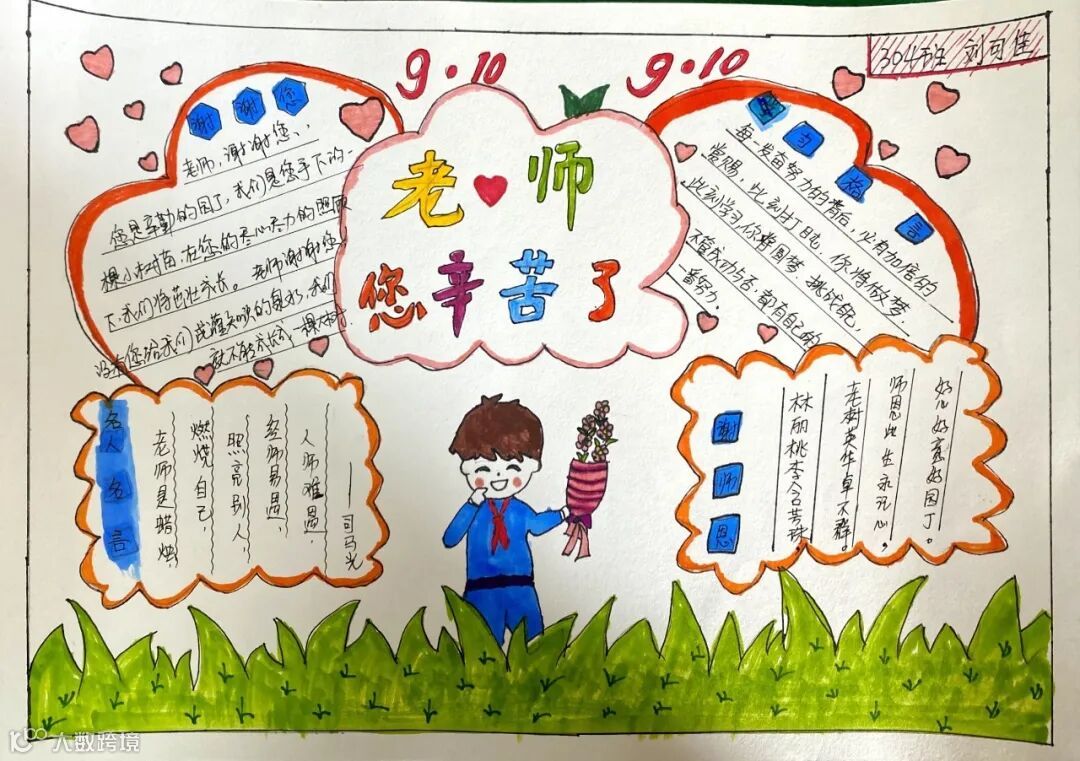 304班 刘可佳
9·10
9·10
老师
您辛苦了
谢谢您
老师,谢谢您、、
您是辛勤的园丁,我们是您手下的一
棵小树苗,在您的尽心尽力的照顾
下,我们将茁壮成长。老师谢谢您,
没有您给我们浇灌知识的泉水,我们
就不能成长成一棵大树。
句格言
每一发奋努力的背后,必有加倍的
赏赐,此刻打盹,你将做梦,
此刻学习,你将圆梦,挑战自己,
不管成功与否,都有自己的
一番努力.
名人名言
老师是蜡烛,
燃烧自己,
照亮别人,
经师易遇,
人师难遇,
——司马光
谢师恩
好儿好喜好园丁。
师恩此生永记心,
老树英华卓不群。
林丽桃李含芳珠,
大数跨境